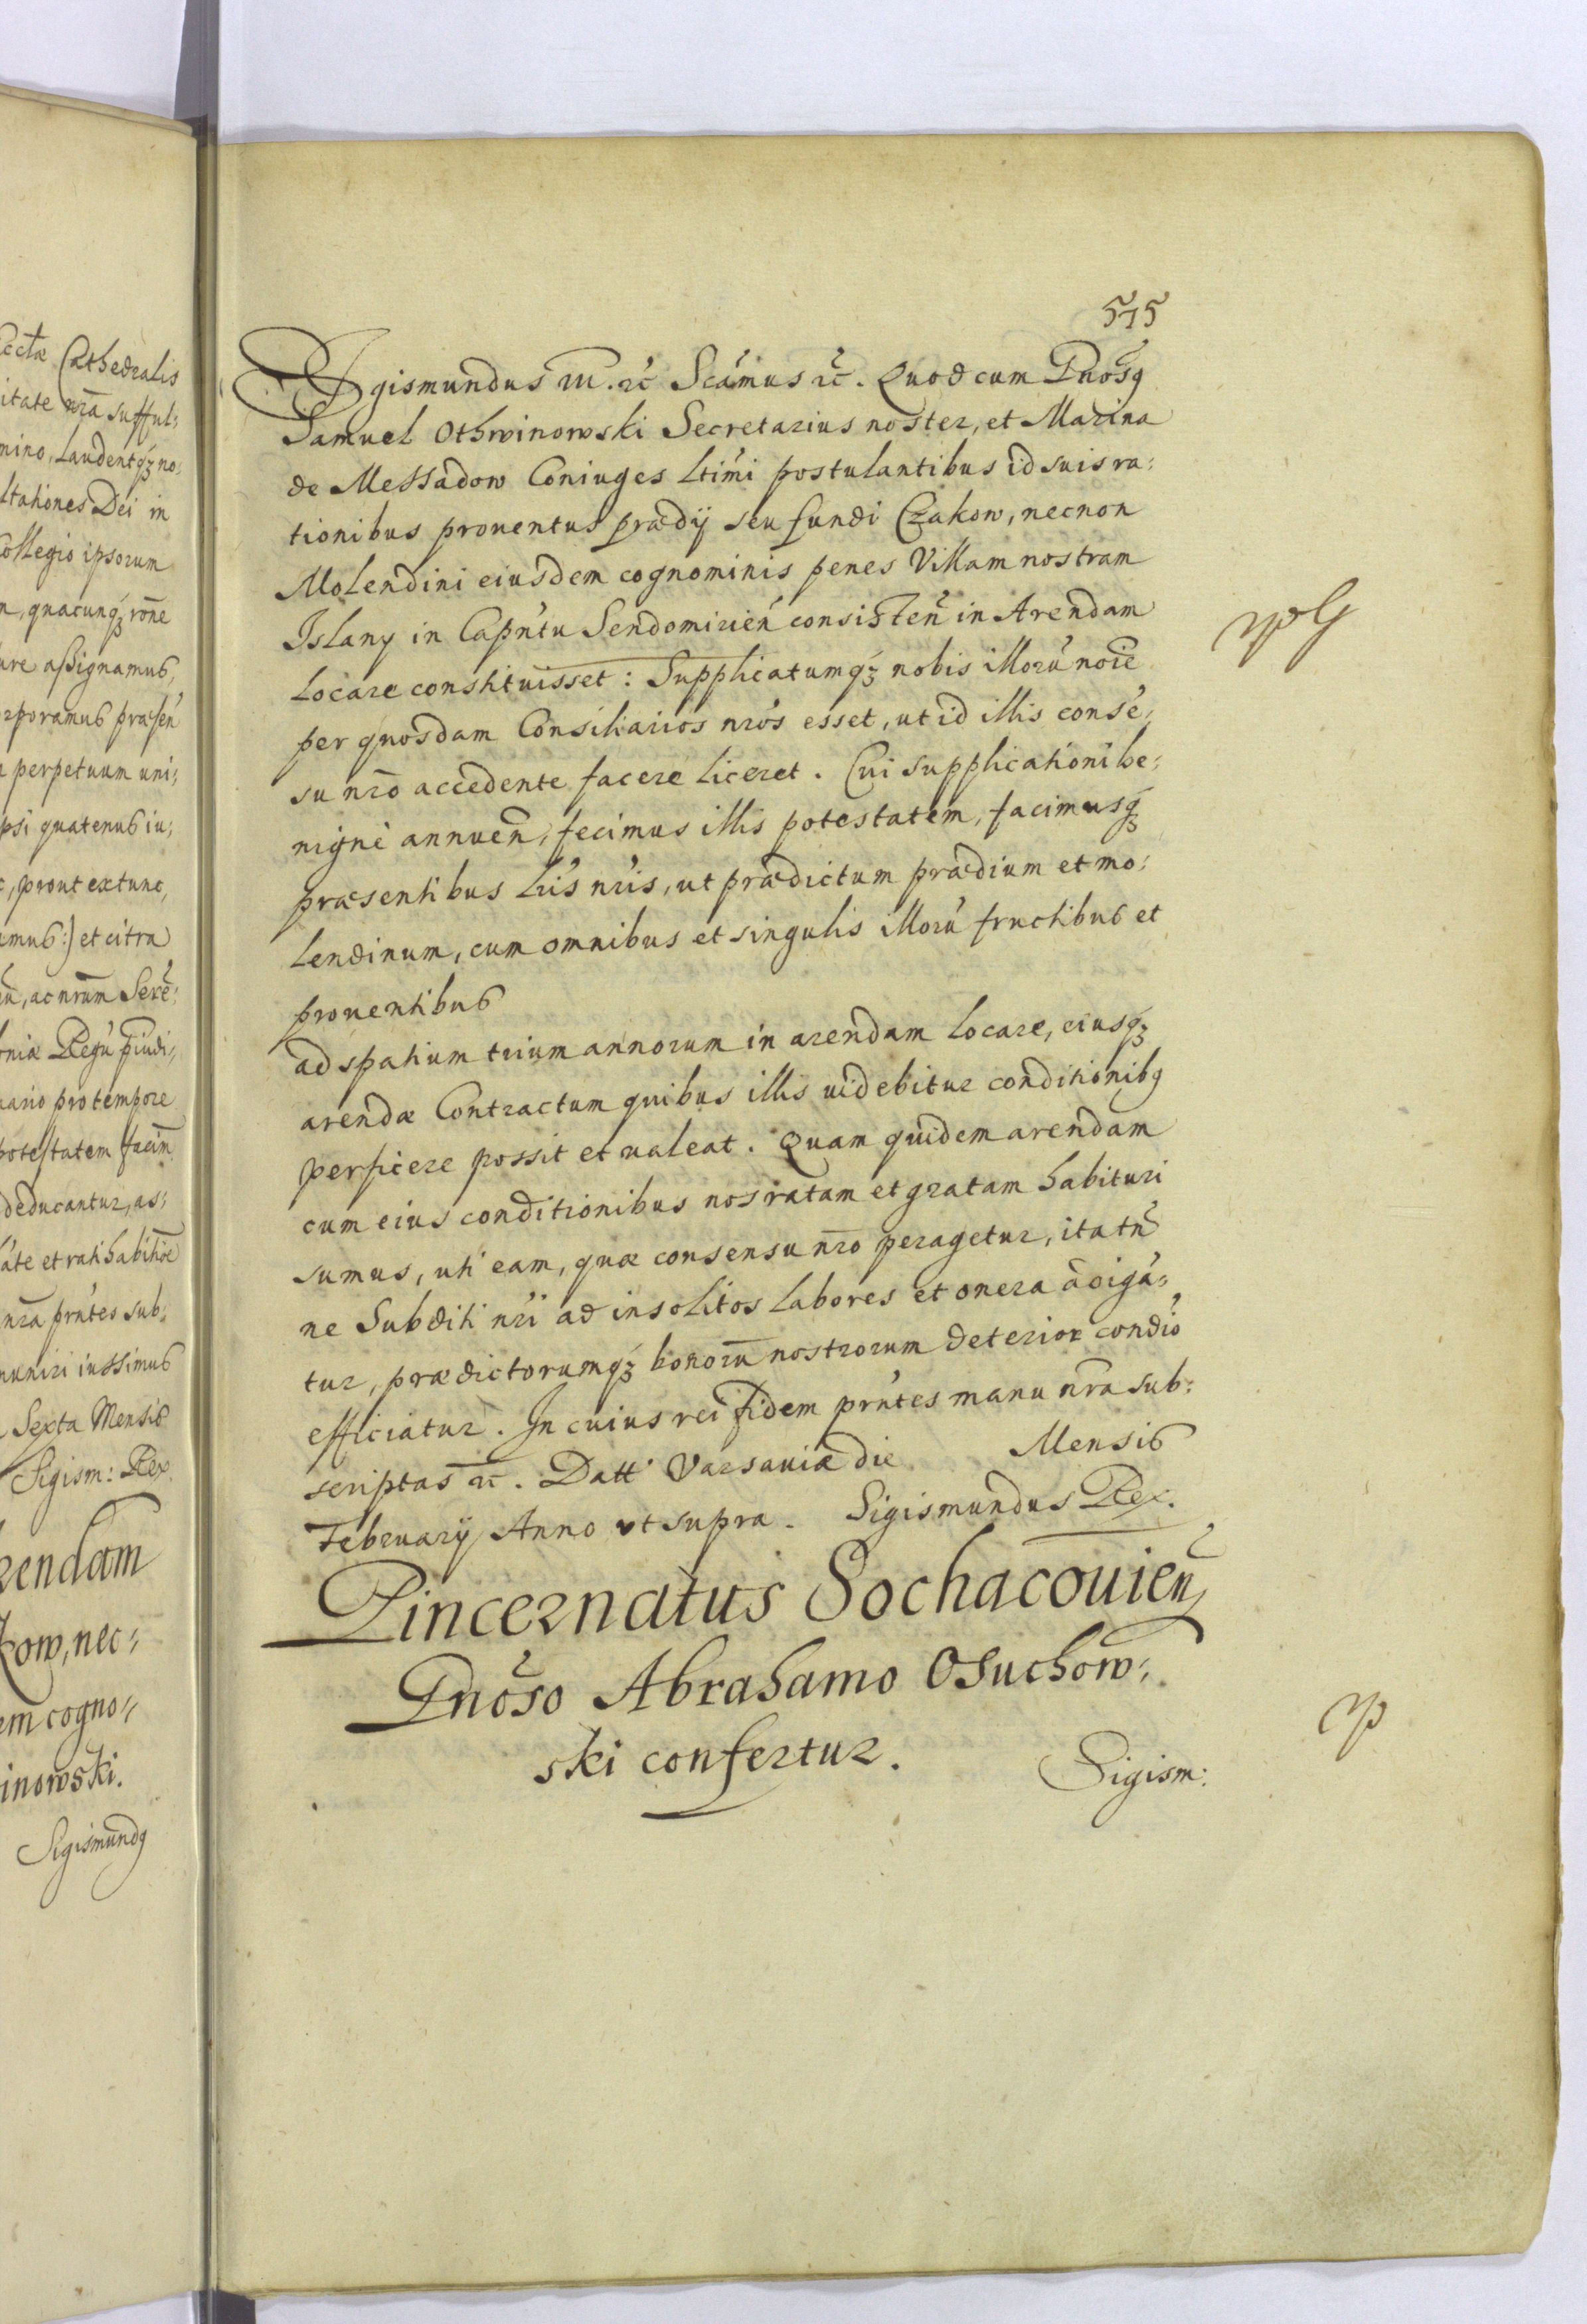 ecctæ Cathedralis
itate nrã sufful;
mino, Laudentq́ꝫ no;
ltationes Dei in
Collegio ipsorum
n, quacunq́ꝫ rõne
ure assignamus,
orporamus præsen̄
a perpetuum uni;
psi quatenus iu;
c, prout ex tunc,
amus:) et citra
ac nrũm Serē:
oniæ Regũ
uario pro tempore
potestatem facim̄
deducantur, as;
áte et ratihabitiõe
nrã prńtes sub;
muniri iussimus
Sexta Mensis
Sigism: Rex.
rendam
kow, nec;
em cogno;
inowski.
Sigismundꝯ
515
Sigismundus III. ꝛc̃ Scámus ꝛc̃. Quod cum Gnõsꝯ
Samuel Othwinowski Secretarius noster, et Marina
de Messadow Coniuges Ltimí postulantibus id suis ra;
tionibus prouentus prædij seu fundi Czakow, necnon
Molendini eiusdem cognominis penes Villam nostram
Islany in Capńtu Sendomirień consisten̄ in Arendam
Locare constituisset: Supplicatumq́ꝫ nobis illorú noĩe
per quosdam Consiliarios nrós esset, ut id illis conse;
su nr̃o accedente facere liceret. Cui supplicationi be;
nigné annuen̄, fecimus illis potestatem, facimusq́ꝫ
præsentibus Lrís nrís, ut prædictum prædium et mo;
lendinum, cum omnibus et singulis illorú fructibus et
prouentibus
ad spatium trium annorum in arendam Locare, eiusq́ꝫ
arendæ Contractum quibus illis uidebitur conditionibꝯ
perficere possit et ualeat. Quam quidem arendam
cum eius conditionibus nos ratam et gratam habituri
sumus, uti eam, quæ consensu nr̃o peragetur, ita tñ
ne Subditi nrí ad insolitos Labores et onera ãdigá;
tur, prædictorumq́ꝫ bonorũ nostrorum deterior condió
efficiatur. In cuius rei fidem prńtes manu nr̃a sub:
scriptas ꝛc̃. Datt Varsauiæ die Mensis
Februarij Anno ut supra. Sigismundus Rex.
Pincernatus Sochacouień
Gnõso Abrahamo Osuchow;
ski confertur.
Sigism: